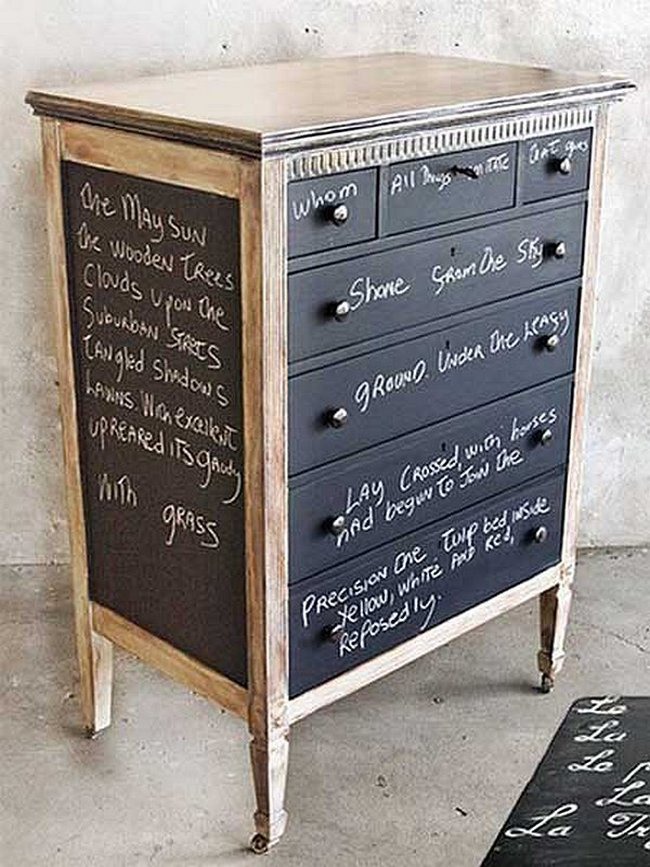 The May Sun
The wooden trees
Clouds upon the
Suburban streets
Tangled shadows
Lawns. With excellent
upreared its gaudy
With grass
Whom
All Things imitate
That gives
Shone from the sky
ground. Under the leafy
Lay crossed, with houses
had begun to join the
Precision the tulip bed inside
Yellow, white and red,
reposedly.
La
La
La
La
La